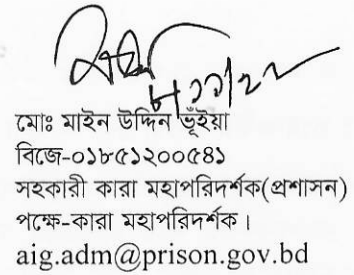 মোঃ মাইন উদ্দিন ভূঁইয়া
বিজে-০১৮৫১২০০৫৪১
সহকারী কারা মহাপরিদর্শক(প্রশাসন)
পক্ষে-কারা মহাপরিদর্শক।
aig.adm@prison.gov.bd